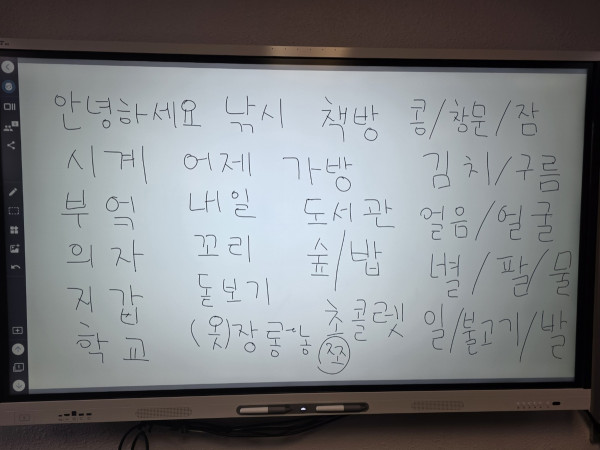 안녕하세요 낚시 책방 콩/창문/잠
시계 어제 가방 김치/구름
부엌 내일 도서관 얼음/얼굴
의자 꼬리 숲/밥 별/팔/물
지갑 돋보기 초콜렛 일/불고기/발
학교 (옷)장롱~농 쪽